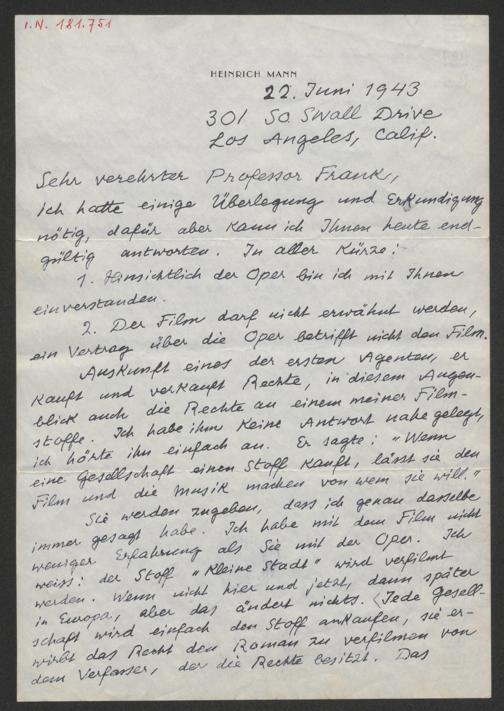 I.N. 181.751
HEINRICH MANN
22. Juni 1943
301 So. Swall Drive
Los Angeles, Calif.
Sehr verehrter Professor Frank,
ich hatte einige Überlegung und Erkundigung
nötig, dafür aber kann ich Ihnen heute end-
gültig antworten. In aller Kürze:
1. Hinsichtlich der Oper bin ich mit Ihnen
einverstanden.
2. Der Film darf nicht erwähnt werden,
ein Vertrag über die Oper betrifft nicht den Film.
Auskunft eines der ersten Agenten, er
kauft und verkauft Rechte, in diesem Augen-
blick auch die Rechte an einem meiner Film-
stoffe. Ich habe ihm keine Antwort nahe gelegt,
ich hörte ihn einfach an. Er sagte: "Wenn
eine Gesellschaft einen Stoff kauft, lässt sie den
Film und die Musik machen von wem sie will."
Sie werden zugeben, dass ich genau dasselbe
immer gesagt habe. Ich habe mit dem Film nicht
weniger Erfahrung als Sie mit der Oper. Ich
weiss: der Stoff "Kleine Stadt" wird verfilmt
werden. Wenn nicht hier und jetzt, dann später
in Europa, aber das ändert nichts. Jede Gesell-
schaft wird einfach den Stoff ankaufen, sie er-
wirbt das Recht den Roman zu verfilmen von
dem Verfasser, der die Rechte besitzt. Das